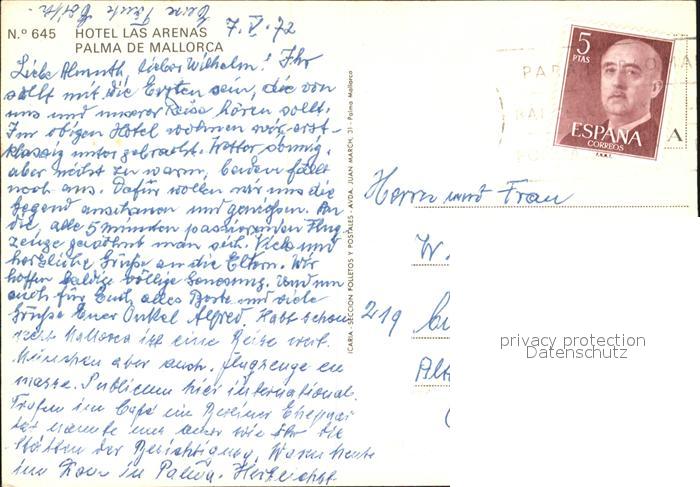 Eure Tante
N.º 645 HOTEL LAS ARENAS 7. V. 72
PALMA DE MALLORCA
Liebe Almuth, lieber Wilhelm! Ihr
sollt mit die Ersten sein, die von
uns und unserer Reise hören sollt.
Im obigen Hotel wohnen wir, erst-
klassig untergebracht. Wetter sonnig,
aber nicht zu warm, baden fällt
noch aus. Dafür wollen wir uns die
Gegend anschauen und genießen. An
die, alle 5 Minuten passierenden Flug-
zeuge gewöhnt man sich. Viele und
herzliche Grüße an die Eltern. Wir
hoffen baldige völlige Genesung. Und nun
auch für Euch alles Beste und viele
Grüße Euer Onkel Alfred. Habt schon
recht Mallorca ist eine Reise wert.
Menschen aber auch. Flugzeuge en
masse. Publicum hier international.
Trafen im Café ein Berliner Ehepaar
das kannte nun aber wie Ihr die
Stätten der Besichtigung. Waren heute
im Dom in Palma. Herzlichst
ICARIA-SECCION FOLLETOS Y POSTALES - AVDA. JUAN MARCH, 31 - Palma Mallorca
5
PTAS
ESPAÑA
CORREOS
A
Herrn und Frau
W.
219
Alt
privacy protection
Datenschutz